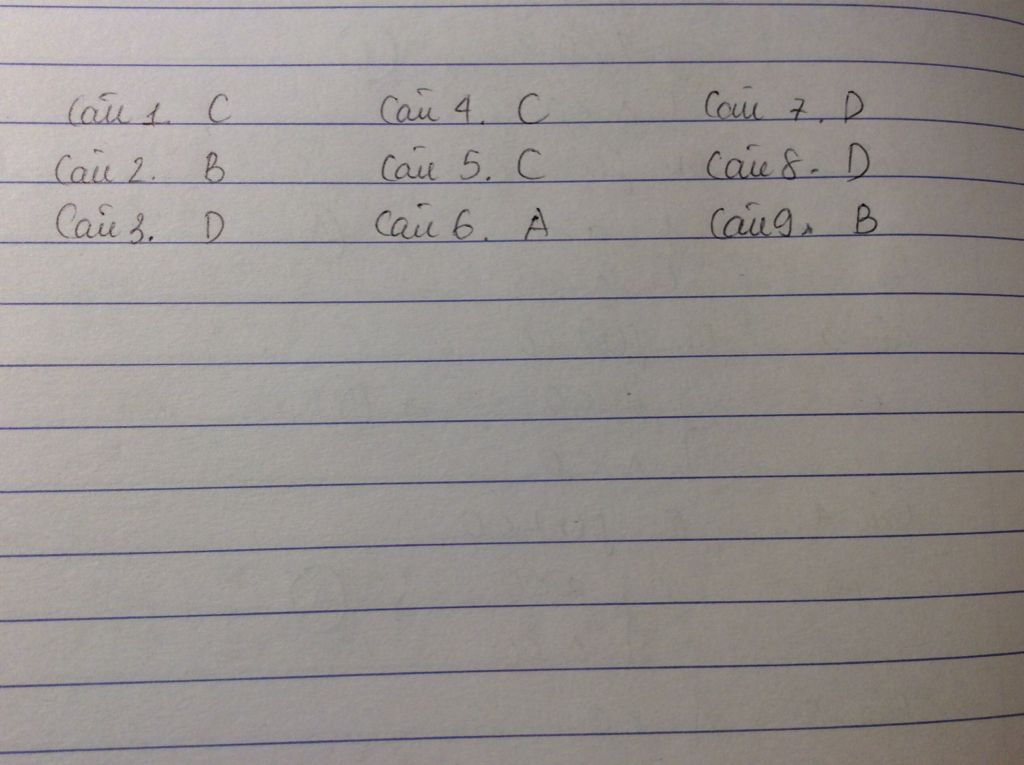 Câu 1. C Câu 4. C Câu 7. D
Câu 2. B Câu 5. C Câu 8. D
Câu 3. D Câu 6. A Câu 9. B